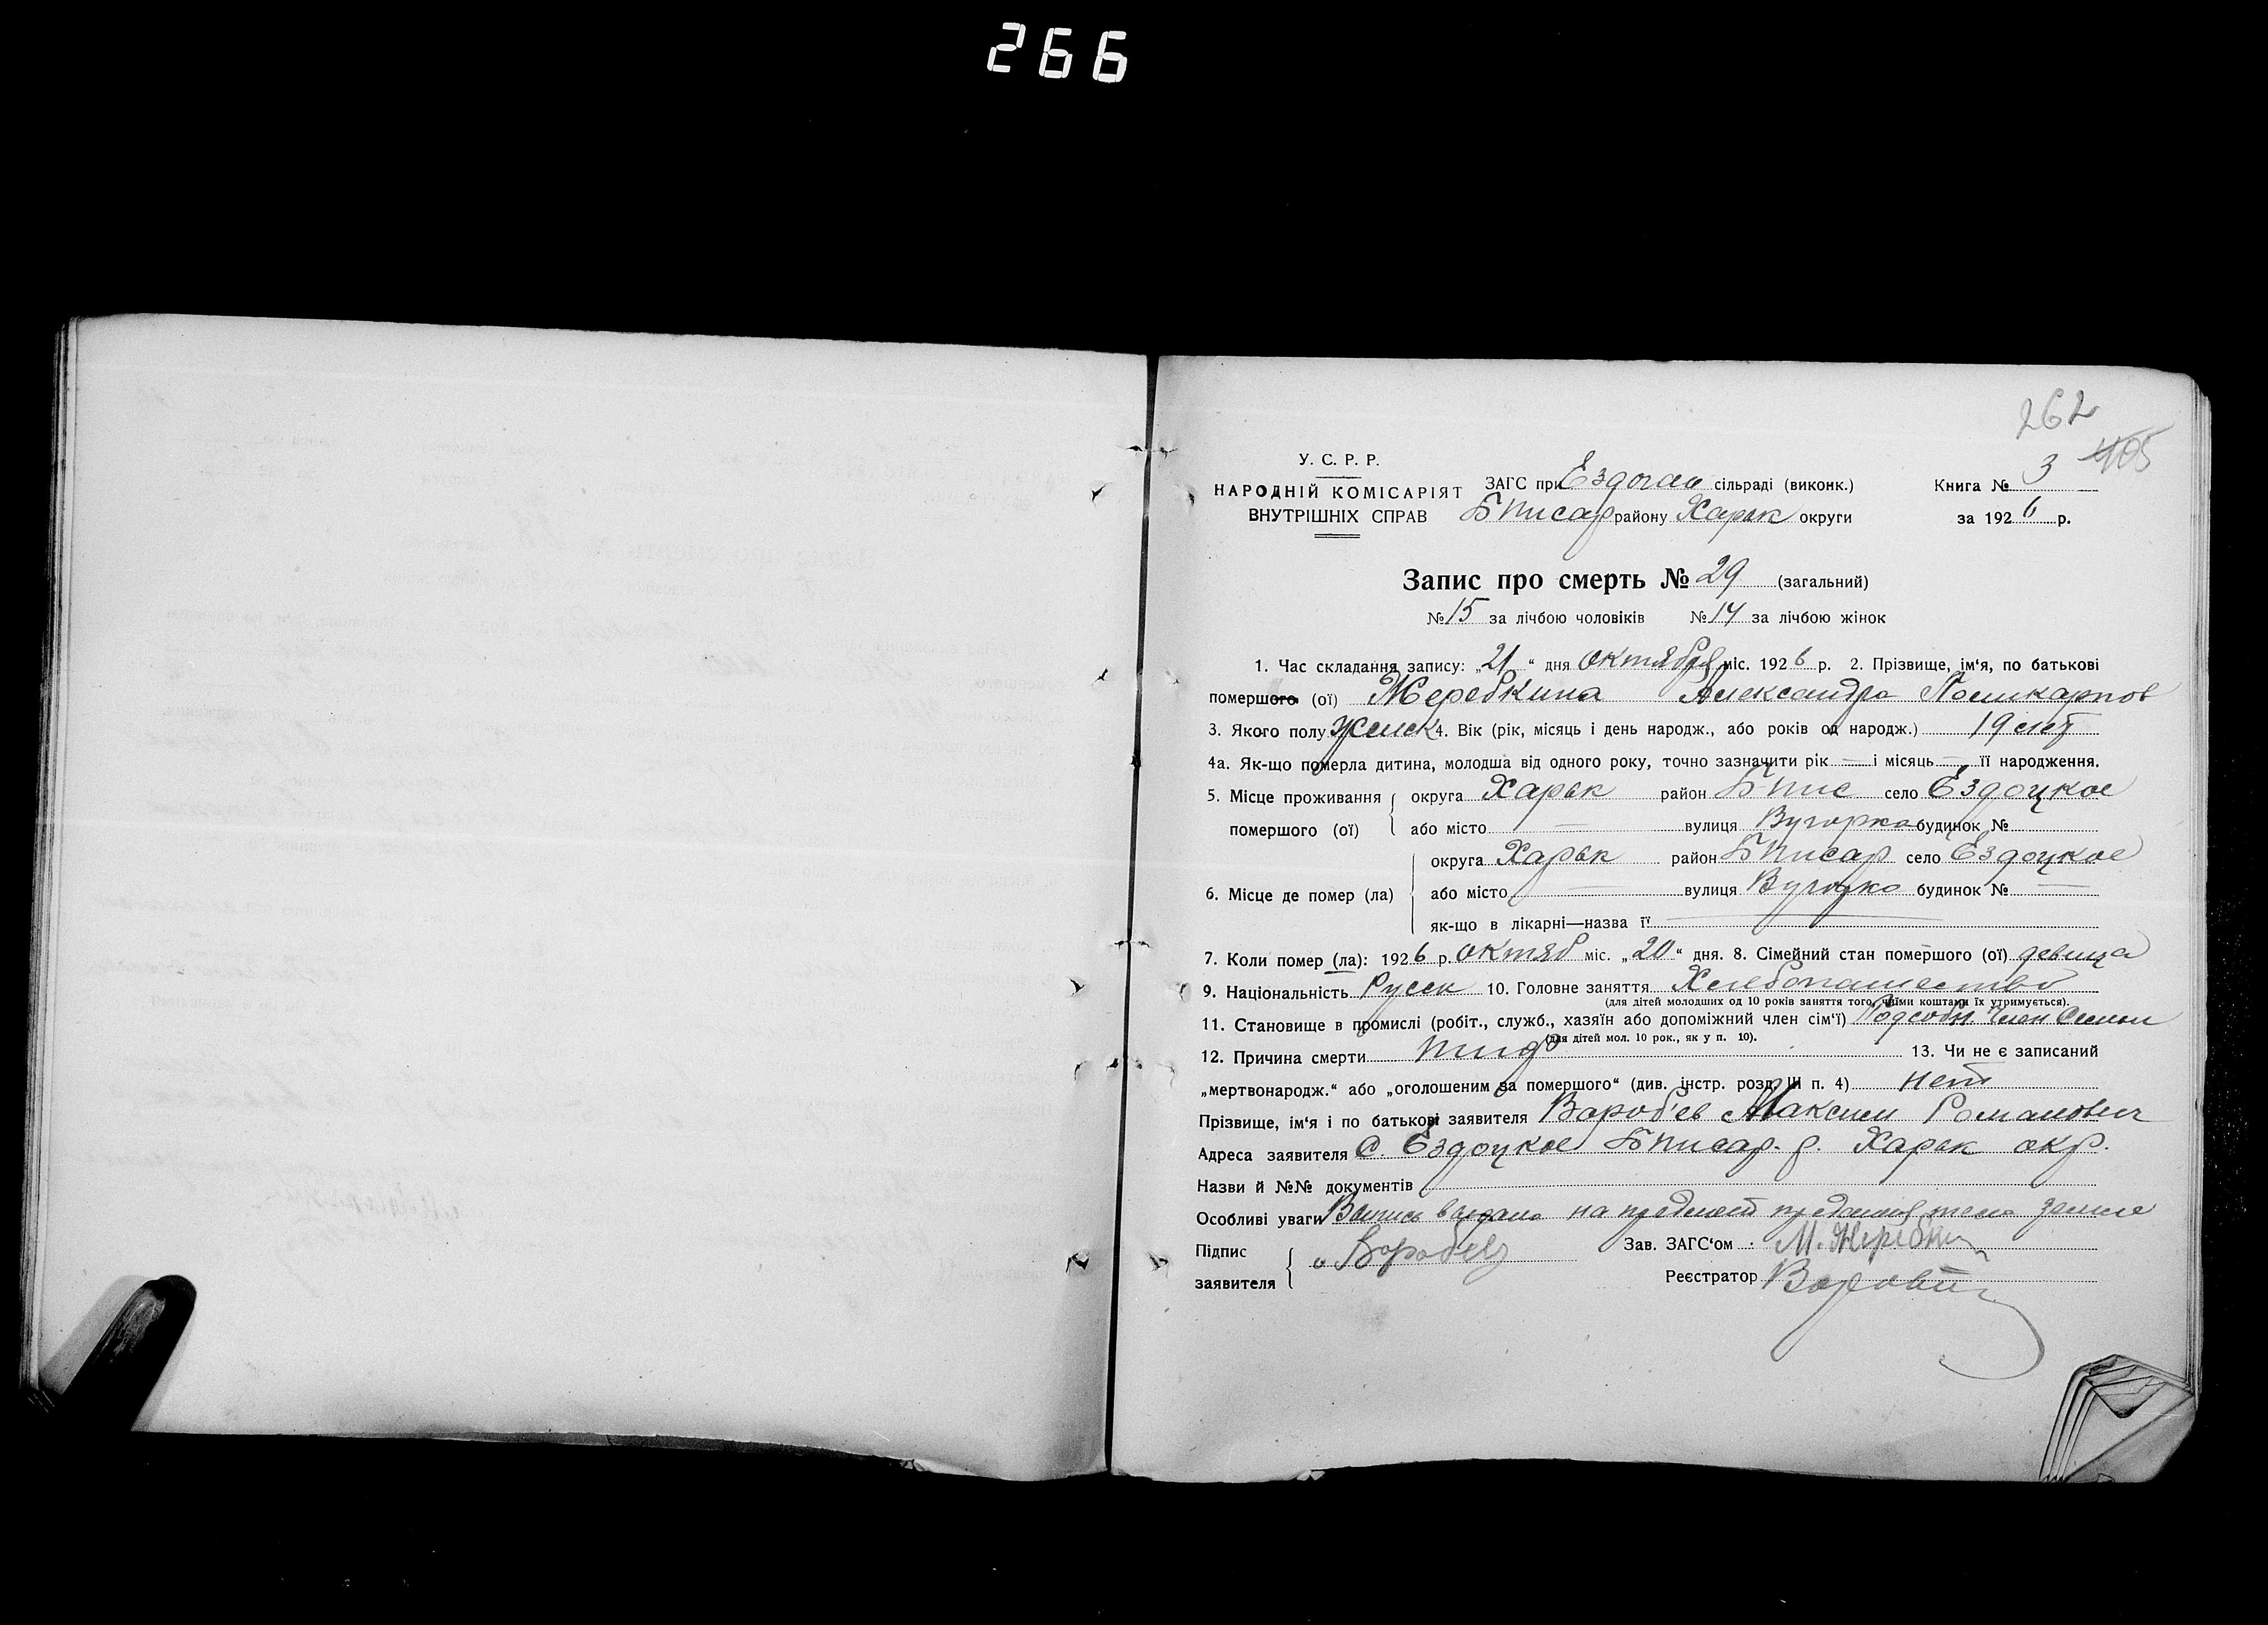 266
262
405
У. С. Р. Р.
НАРОДНІЙ КОМІСАРІЯТ
ВНУТРІШНІХ СПРАВ
ЗАГС при сільраді (виконк.)
БПисар району Харьк округи
Книга № 3
за 1926 р.
Запис про смерть № 29 (загальний)
№ 15 за лічбою чоловіків № 14 за лічбою жінок
1. Час складання запису: „21“ дня октября міс. 1926 р. 2. Прізвище, ім'я, по батькові
помершого (ої) Жеребкина Александра Поликарпов
3. Якого полу женск 4. Вік (рік, місяць і день народж., або років од народж.) 19 лет
4а. Як-що померла дитина, молодша від одного року, точно зазначити рік — і місяць — її народження.
5. Місце проживання помершого (ої) округа Харьк район БПис село Ездоцкое
або місто — вулиця будинок №
6. Місце де помер (ла) округа Харьк район БПисар село Ездоцкое
або місто — вулиця будинок № —
як-що в лікарні—назва її
7. Коли помер (ла): 1926 р. октяб міс. „20“ дня. 8. Сімейний стан помершого (ої) девица
9. Національність Русск 10. Головне заняття Хлебопашество
(для дітей молодших од 10 років заняття того, чиїми коштами їх утримується).
11. Становище в промислі (робіт., служб., хазяїн або допоміжний член сім'ї) Подсобн. Член Семьи
(для дітей мол. 10 рок., як у п. 10).
12. Причина смерти 13. Чи не є записаний
„мертвонародж.“ або „оголошеним за помершого“ (див. інстр. розд. III п. 4) нет
Прізвище, ім'я і по батькові заявителя Вороб'ев Максим Романович
Адреса заявителя С. Ездоцкое БПисар. р. Харьк окр.
Назви й №№ документів
Особливі уваги Выпись выдана на предмет предания тела земле
Підпис заявителя Воробьев
Зав. ЗАГС'ом М. Жеребкин
Реєстратор